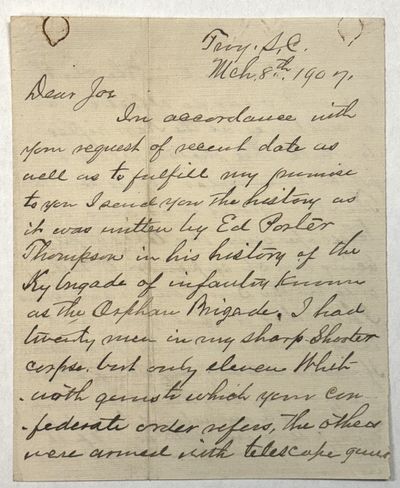 Troy, S.C.
Mch. 8th. 1907.
Dear Joe
In accordance with
your request of recent date as
well as to fulfill my promise
to you I send you the history as
it was written by Ed Porter
Thompson in his history of the
Ky brigade of infantry known
as the Orphan Brigade. I had
twenty men in my sharp Shooter
corpse. but only eleven Whit-
-woth guns to which your con-
-federate order refers, the others
were armed with telescope guns